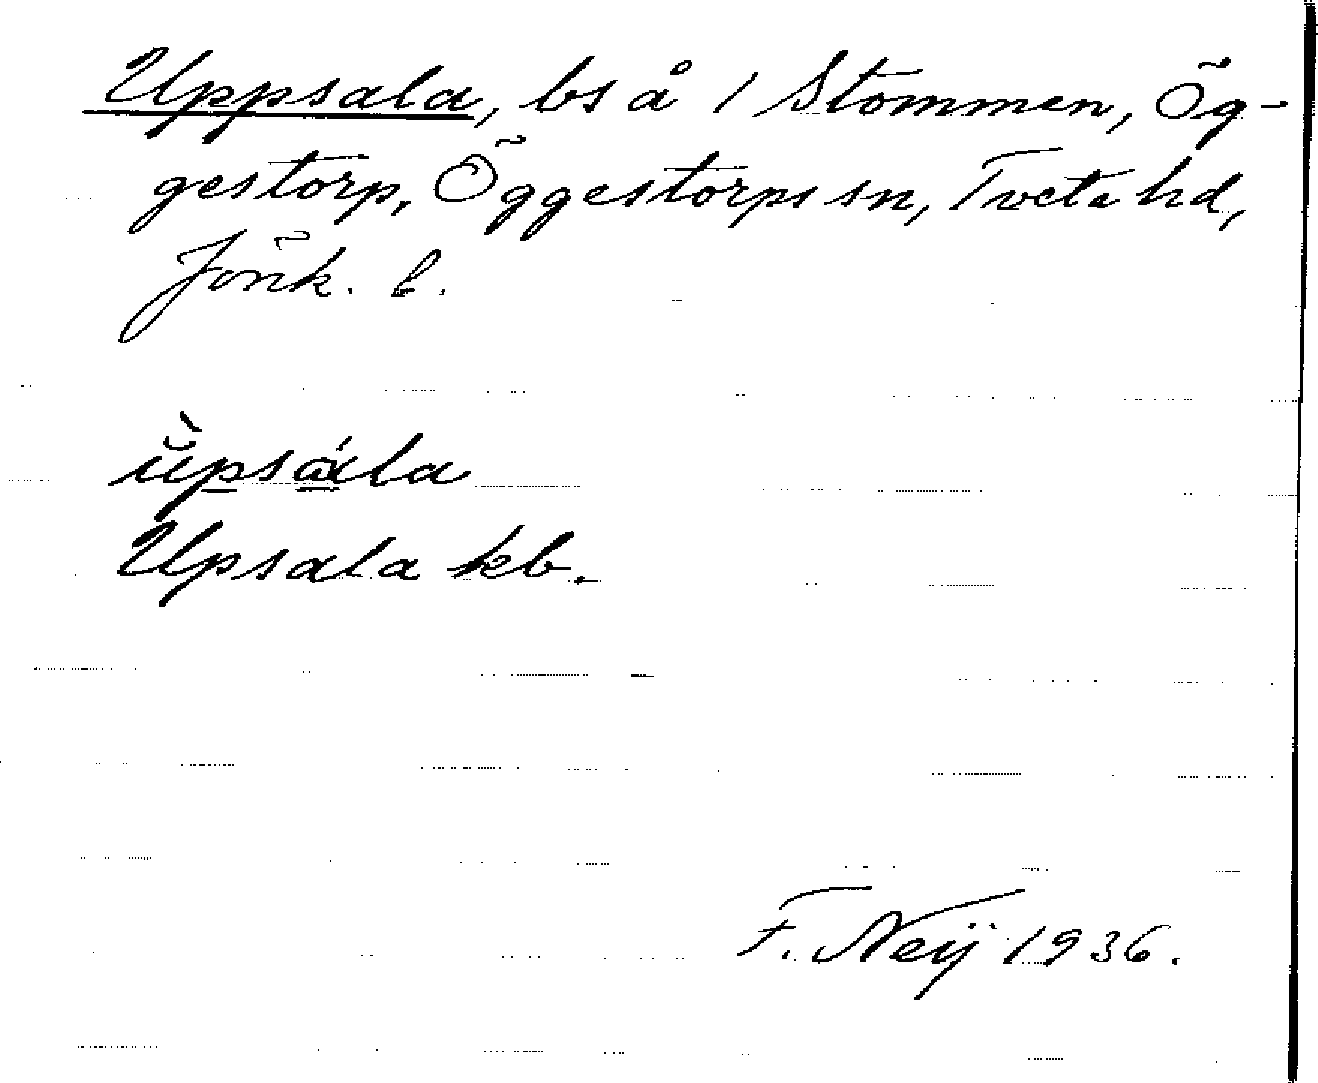 Uppsala, bs å 1 Stommen, Ög-
gestorp, Öggestorps sn, Tveta hd,
Jönk. l.
Upsala kb.
F. Neij 1936.